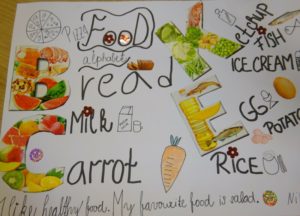 Pizza
FOOD
alphabet
Bread
Milk
Carrot
Ketchup
FISH
ICE CREAM
EGG
POTATO
RICE
I like healthy food. My favourite food is salad.